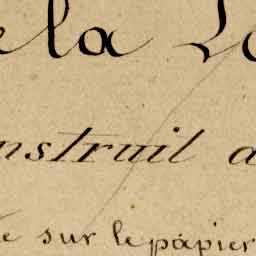 e la Lo
nstruit a
e sur le papier